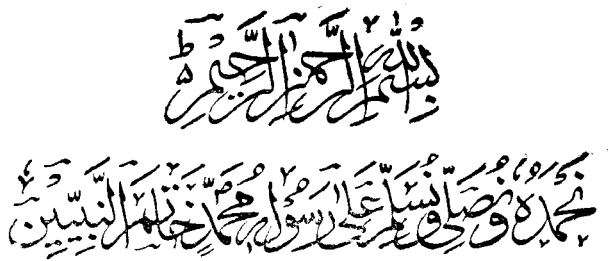 بِسْمِ اللهِ الرَّحْمٰنِ الرَّحِيْمِ ط
نَحْمَدُهٗ وَ نُصَلِّي وَ نُسَلِّمُ عَلٰى رَسُوْلِهٖ مُحَمَّدٍ خَاتَمِ النَّبِيِّيْنَ